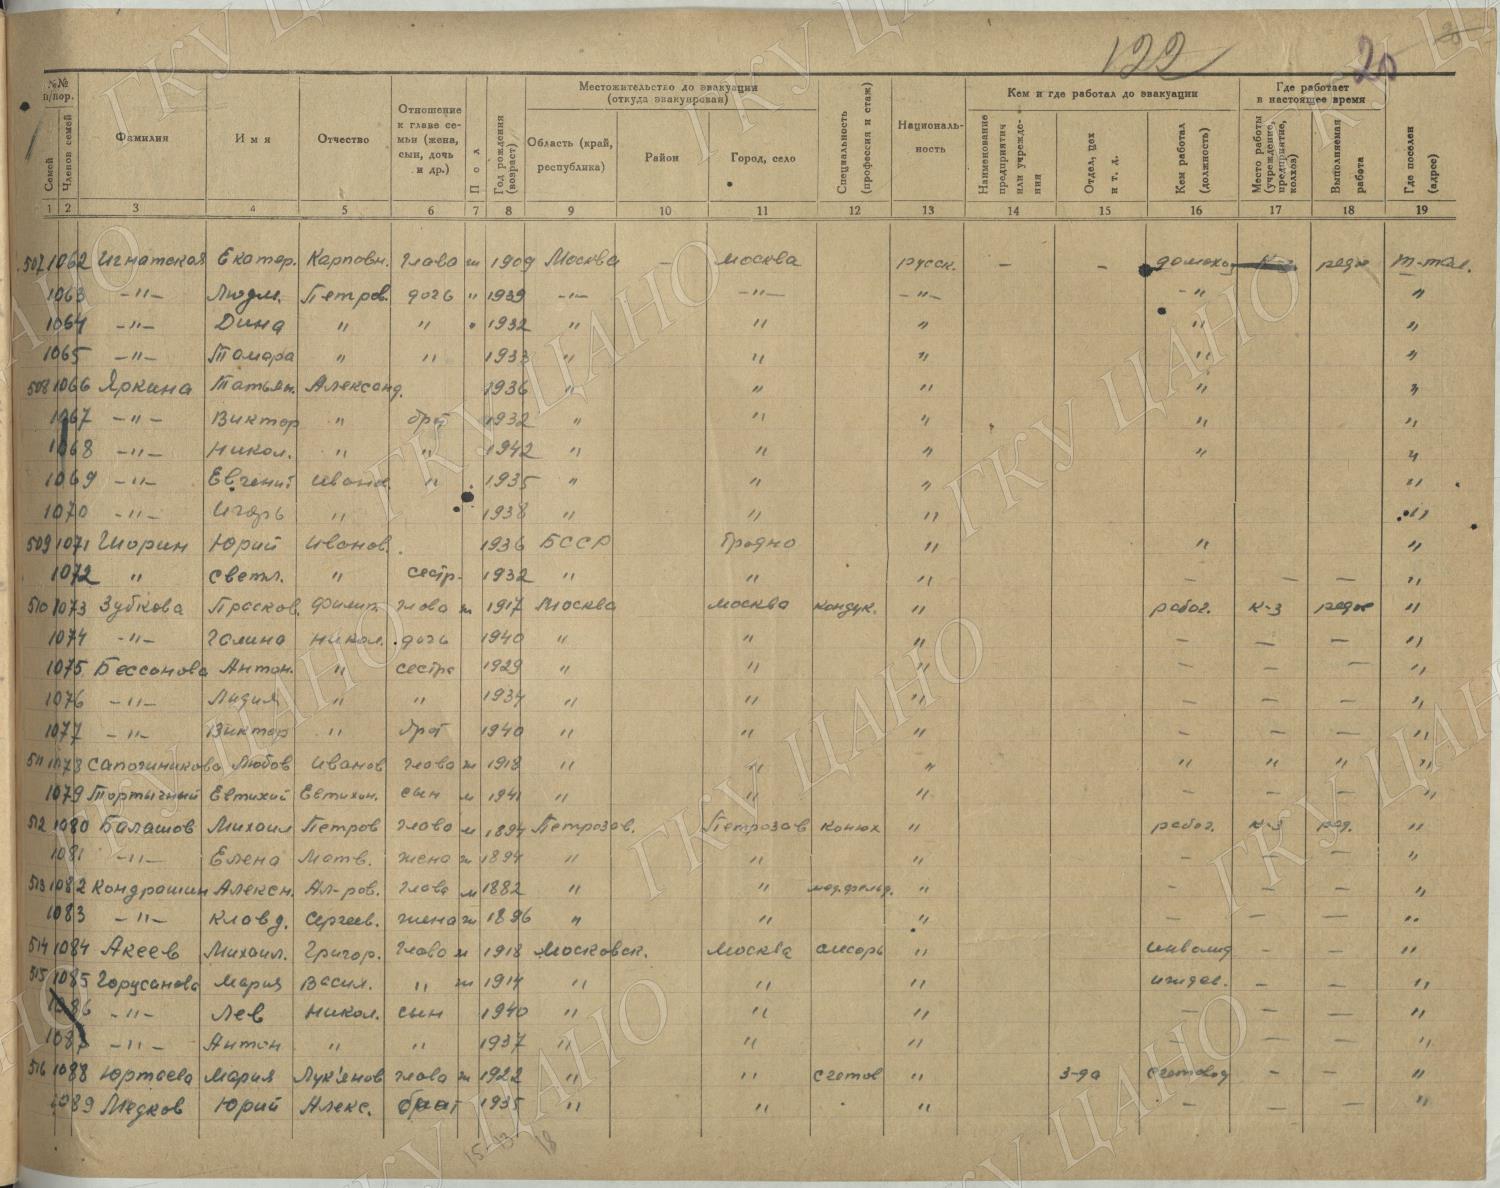 122 20
№№ п/пор. Местожительство до эвакуации (откуда эвакуирован) Кем и где работал до эвакуации Где работает в настоящее время
Семей Членов семей Фамилия Имя Отчество Отношение к главе семьи (жена, сын, дочь и др.) Пол Год рождения (возраст) Область (край, республика) Район Город, село Специальность (профессия и стаж) Национальность Наименование предприятия или учреждения Отдел, цех и т. д. Кем работал (должность) Место работы (учреждение, предприятие, колхоз) Выполняемая работа Где поселен (адрес)
1 2 3 4 5 6 7 8 9 10 11 12 13 14 15 16 17 18 19
507 1062 Игнатская Екатер. Карповн. глава ж 1909 Москва — Москва русск. — — домохоз к-з рядов
1063 —"— Людм. Петров. дочь " 1939 —"— —"— —"— —" "
1064 —"— Дина " " 1932 " " " " "
1065 —"— Тамара " " 1933 " " " " "
508 1066 Яркина Татьян. Александ. 1936 " " " " "
1067 —"— Виктор " брат 1932 " " " " "
1068 —"— Никол. " " 1942 " " " " "
1069 —"— Евгений Иванов. " 1935 " " " "
1070 —"— Игорь " 1938 " " " "
509 1071 Шорин Юрий Иванов. 1936 БССР Гродно " " "
1072 " Светл. " сестр. 1932 " " " — — — "
510 1073 Зубкова Прасков. Филип. глава ж 1917 Москва Москва кондук. " работ. к-з рядов "
1074 —"— Галина Никол. дочь 1940 " " " — — — "
1075 Бессонова Антон. " сестра 1929 " " " — — — "
1076 —"— Лидия " " 1934 " " " — — — "
1077 —"— Виктор " брат 1940 " " " — — — "
511 1078 Сапожникова Любов Иванов глава ж 1918 " " " " " " "
1079 Тортычный Евтихий Евтихин. сын м 1941 " " " — — — "
512 1080 Балашов Михаил Петров глава м 1894 Петрозав. Петрозав конюх " работ. к-з ряд. "
1081 —"— Елена Матв. жена ж 1894 " " " — — — "
513 1082 Кондрашин Алексн. Ал-ров. глава м 1882 " " " — — — "
1083 —"— Клавд. Сергеев. жена ж 1896 " " " — — — "
514 1084 Акеев Михаил. Григор. глава м 1918 Московск. Москва слесарь " инвалид — — "
515 1085 Горусанова Мария Васил. " ж 1914 " " " иждев. — — "
1086 —"— Лев Никол. сын 1940 " " " — — — "
1087 —"— Антон " " 1937 " " " — — — "
516 1088 Юртаева Мария Лукъянов глава ж 1922 " " счетов " з-да счетовод — — "
1089 Медков Юрий Алекс. брат 1935 " " " — — — "
18
ГКУ ЦАНО